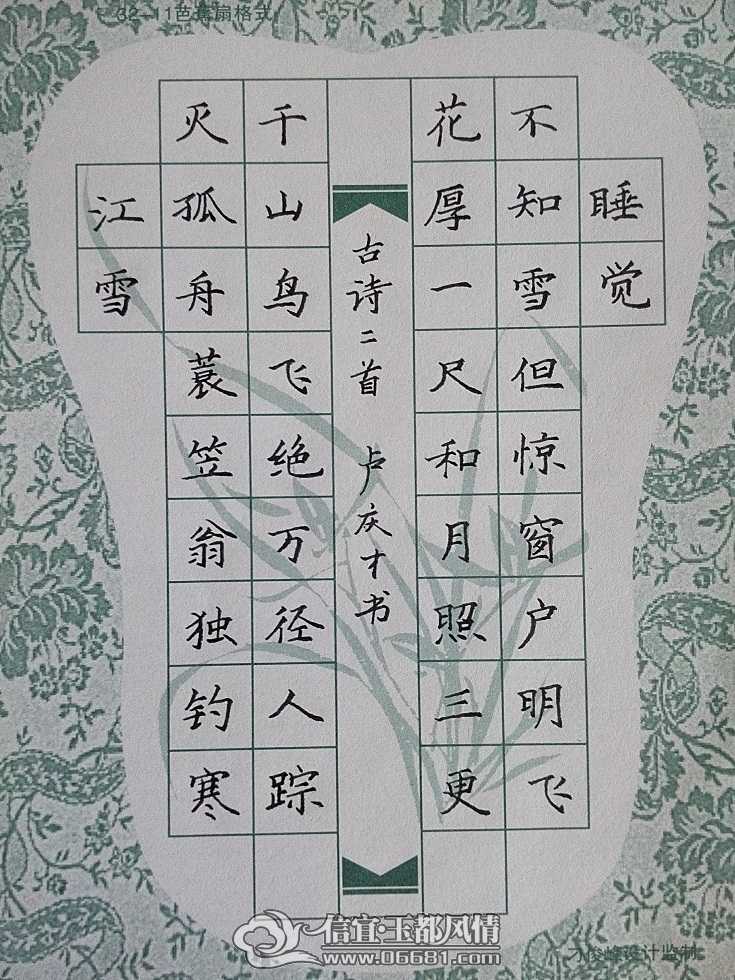 32-11芭蕉扇格式
睡觉
不知雪但惊窗户明飞
花厚一尺和月照三更
古诗二首 卢庆才书
千山鸟飞绝万径人踪
灭孤舟蓑笠翁独钓寒
江雪
俊峰设计监制
信宜·玉都风情
www.06681.com